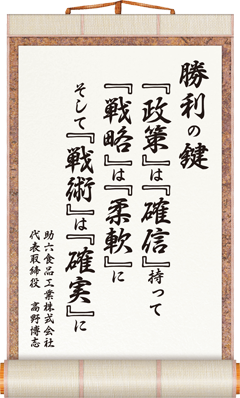 勝利の鍵
『政策』は『確信』持って
『戦略』は『柔軟』に
そして『戦術』は『確実』に
助六食品工業株式会社
代表取締役　高野博志